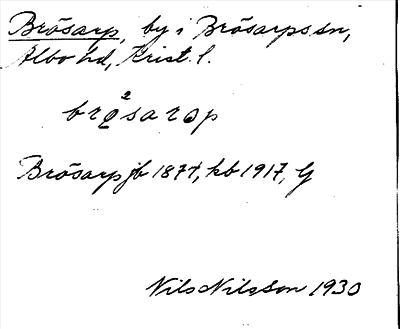 Brösarp, by i Brösarps sn,
Albo hd, Krist. l.
brǫ²sarəp
Brösarp jb 1877, kb 1917, G
Nils Nilsson 1930